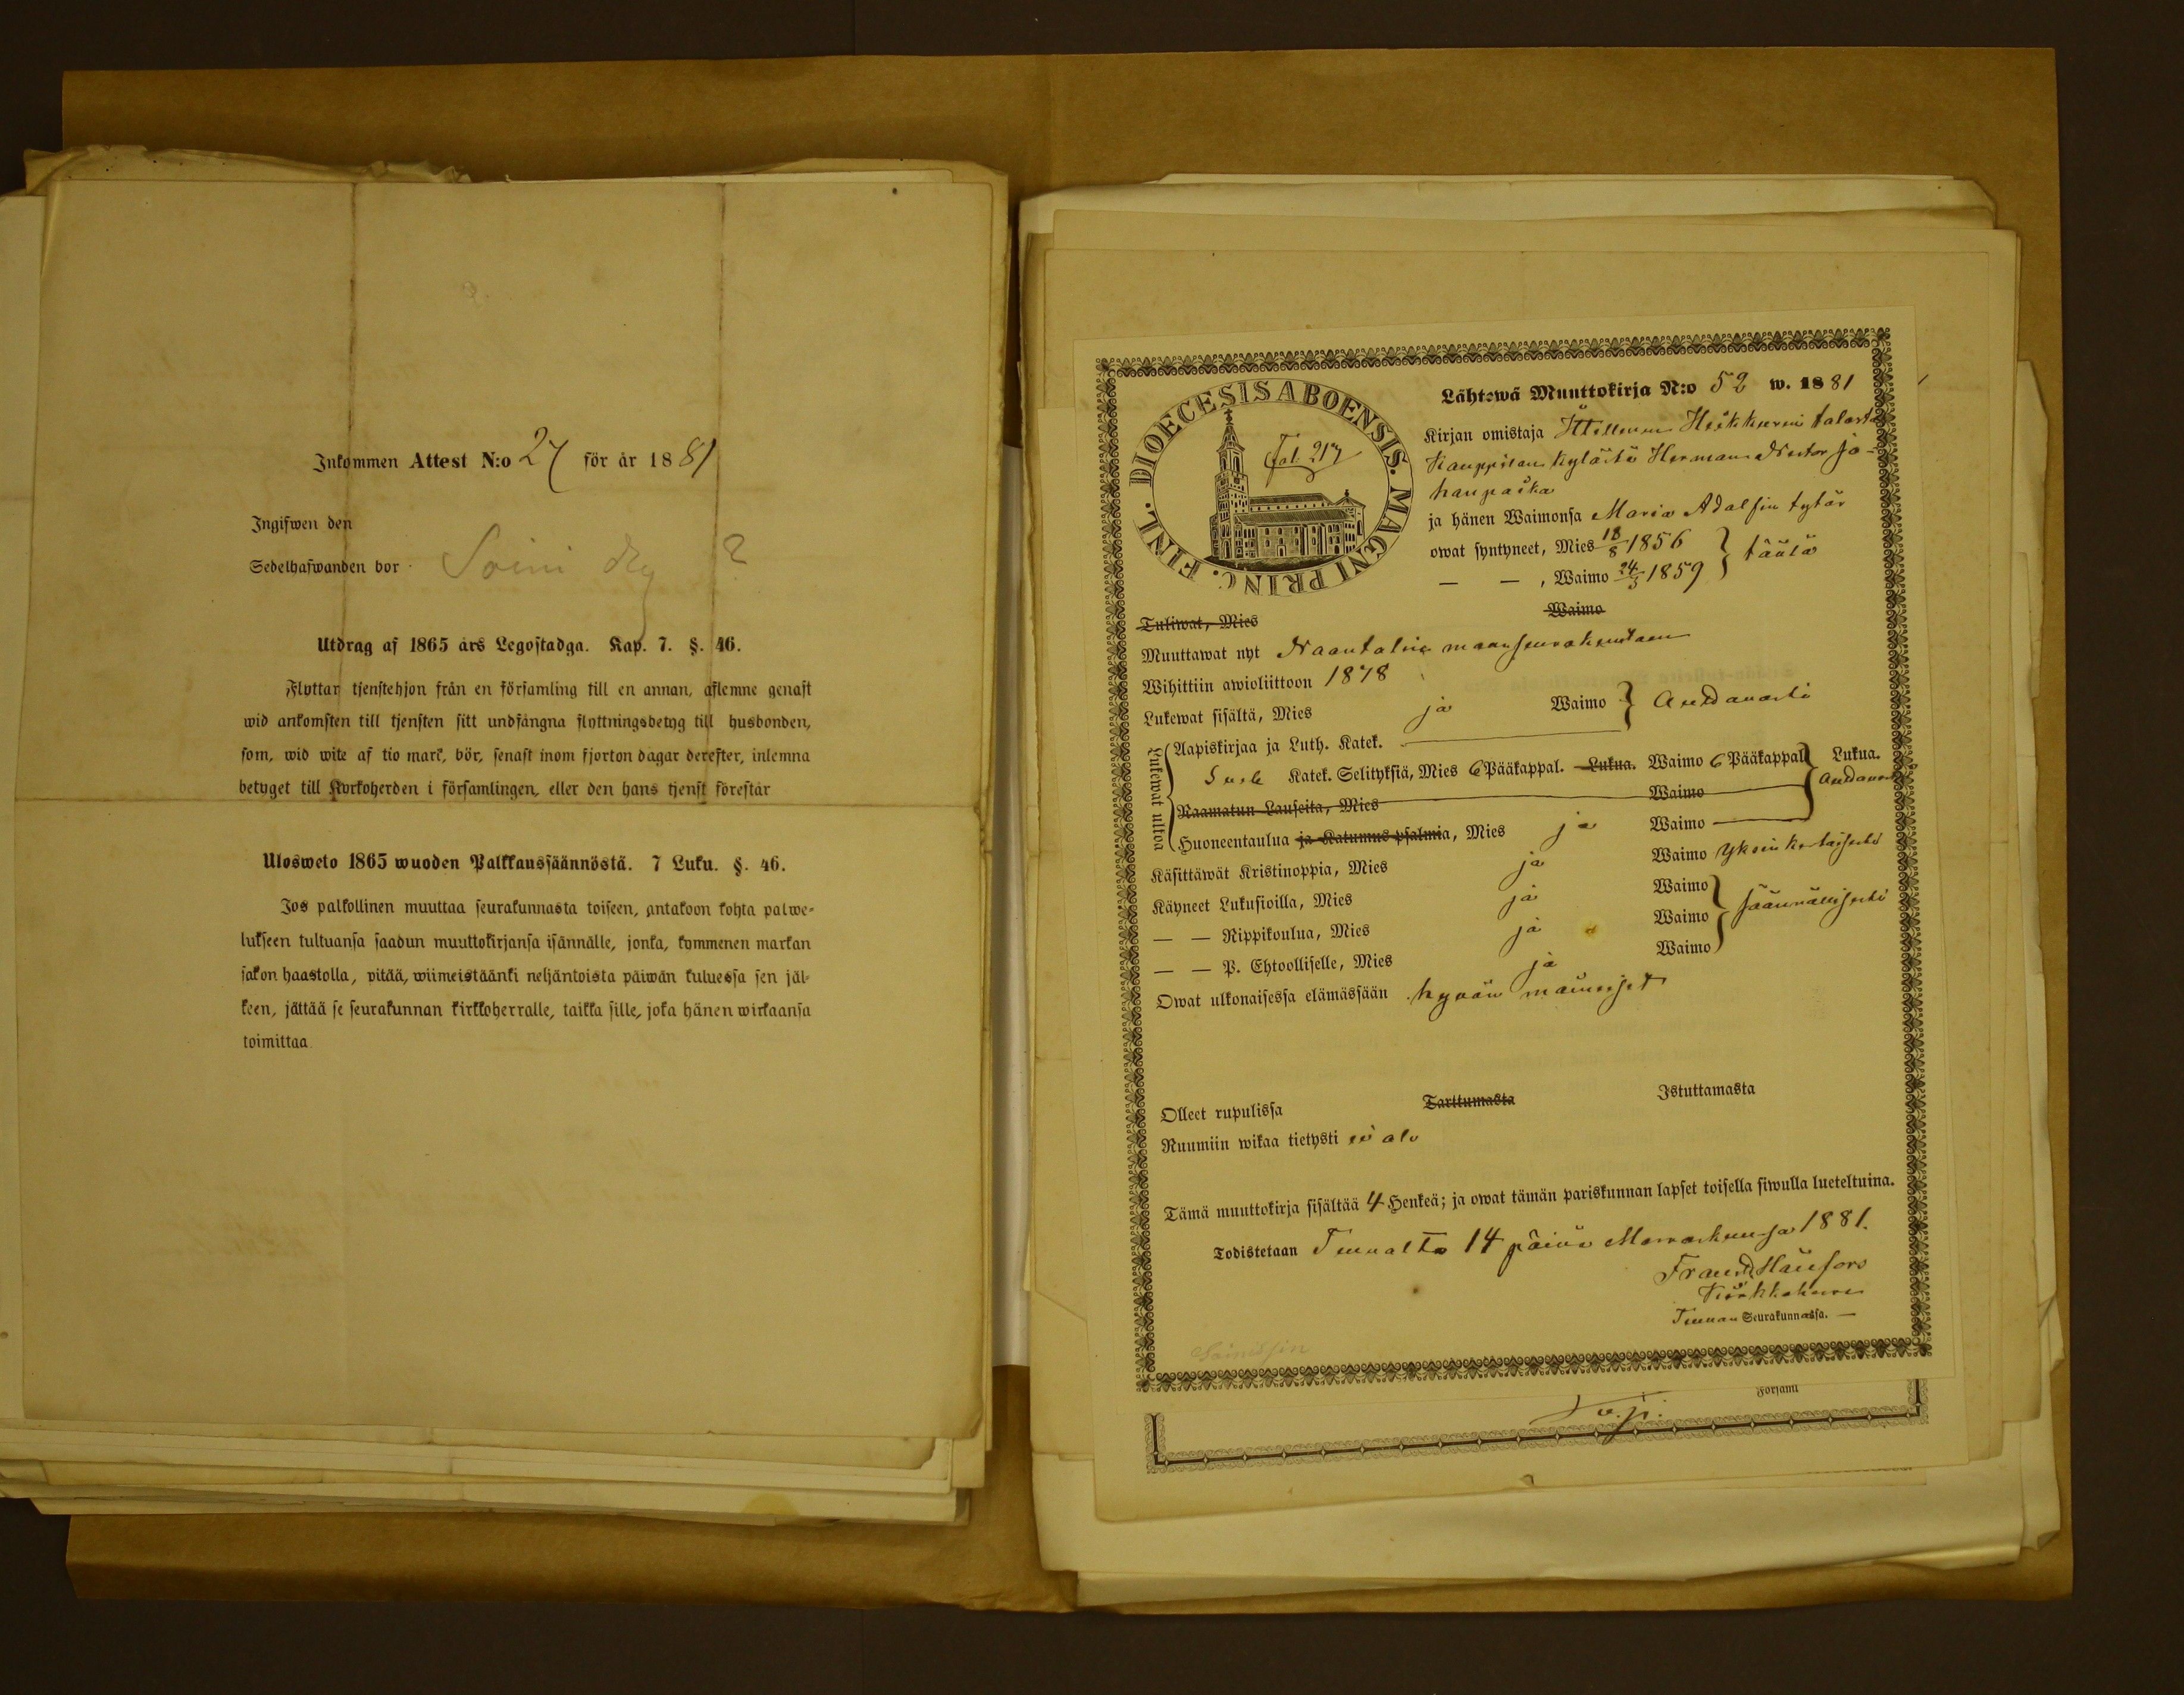 Inkommen Attest N:o 27 för år 1881
Ingifwen den
Sedelhafwanden bor Soini ?
Utdrag af 1865 års Legostadga. Kap. 7. §. 46.
Flyttar tjenstehjon från en församling till en annan, aflemne genast
wid ankomsten till tjensten sitt undfångna flyttningsbetyg till husbonden,
som, wid wite af tio mark, bör, senast inom fjorton dagar derefter, inlemna
betyget till Kyrkoherden i församlingen, eller den hans tjenst förestår
Ulosweto 1865 wuoden Palkkaussäännöstä. 7 Luku. §. 46.
Jos palkollinen muuttaa seurakunnasta toiseen, antakoon kohta palwe-
lukseen tultuansa saadun muuttokirjansa isännälle, jonka, kymmenen markan
sakon haastolla, pitää, wiimeistäänki neljäntoista päiwän kuluessa sen jäl-
keen, jättää se seurakunnan kirkkoherralle, taikka sille, joka hänen wirkaansa
toimittaa.
DIOECESIS ABOENSIS. MAGNI PRINC. FINL.
Fol. 217
Lähtewä Muuttokirja N:o 52 w. 1881
Kirjan omistaja Heikkurin talosta
Kauppilan kylästä Herman Nestor Jo-
hanpoika
ja hänen Waimonsa Maria Adalfin tytär
owat syntyneet, Mies 18/8 1856 } täälä
— — , Waimo 24/5 1859
Tuliwat, Mies Waimo
Muuttawat nyt Naantalin maaseurakuntaan
Wihittiin awioliittoon 1878
Lukewat sisältä, Mies ja Waimo } auttavasti
Lukewat ulkoa
Aapiskirjaa ja Luth. Katek.
Katek. Selityksiä, Mies 6 Pääkappal. Lukua. Waimo 6 Pääkappal. Lukua.
auttavasti
Raamatun Lauseita, Mies Waimo
Huoneentaulua ja Katumus psalmia, Mies ja Waimo
Käsittäwät Kristinoppia, Mies ja Waimo yksinkertaisesti
Käyneet Lukusioilla, Mies ja Waimo
— — Rippikoulua, Mies ja Waimo } säännällisesti
— — P. Ehtoolliselle, Mies ja Waimo
Owat ulkonaisessa elämässään hyvän mainejset
Olleet rupulissa Tarttumasta Istuttamasta
Ruumiin wikaa tietysti ei ole
Tämä muuttokirja sisältää 4 Henkeä; ja owat tämän pariskunnan lapset toisella siwulla lueteltuina.
Todistetaan 14 päivä Marraskuussa 1881.
Kirkkoherra
Seurakunnassa.
Soinisiin
Församl
v.p.